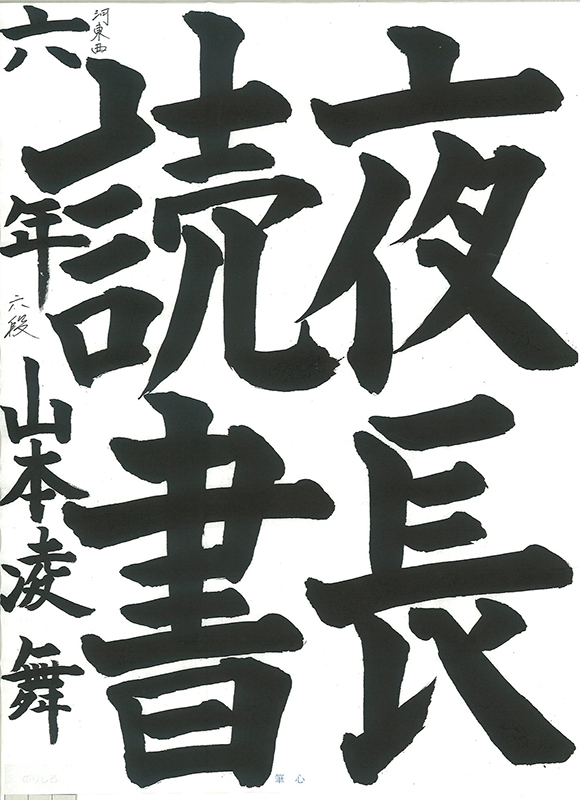 夜長
読書
河東西
六年 六段 山本凌舞
心筆
のりしろ